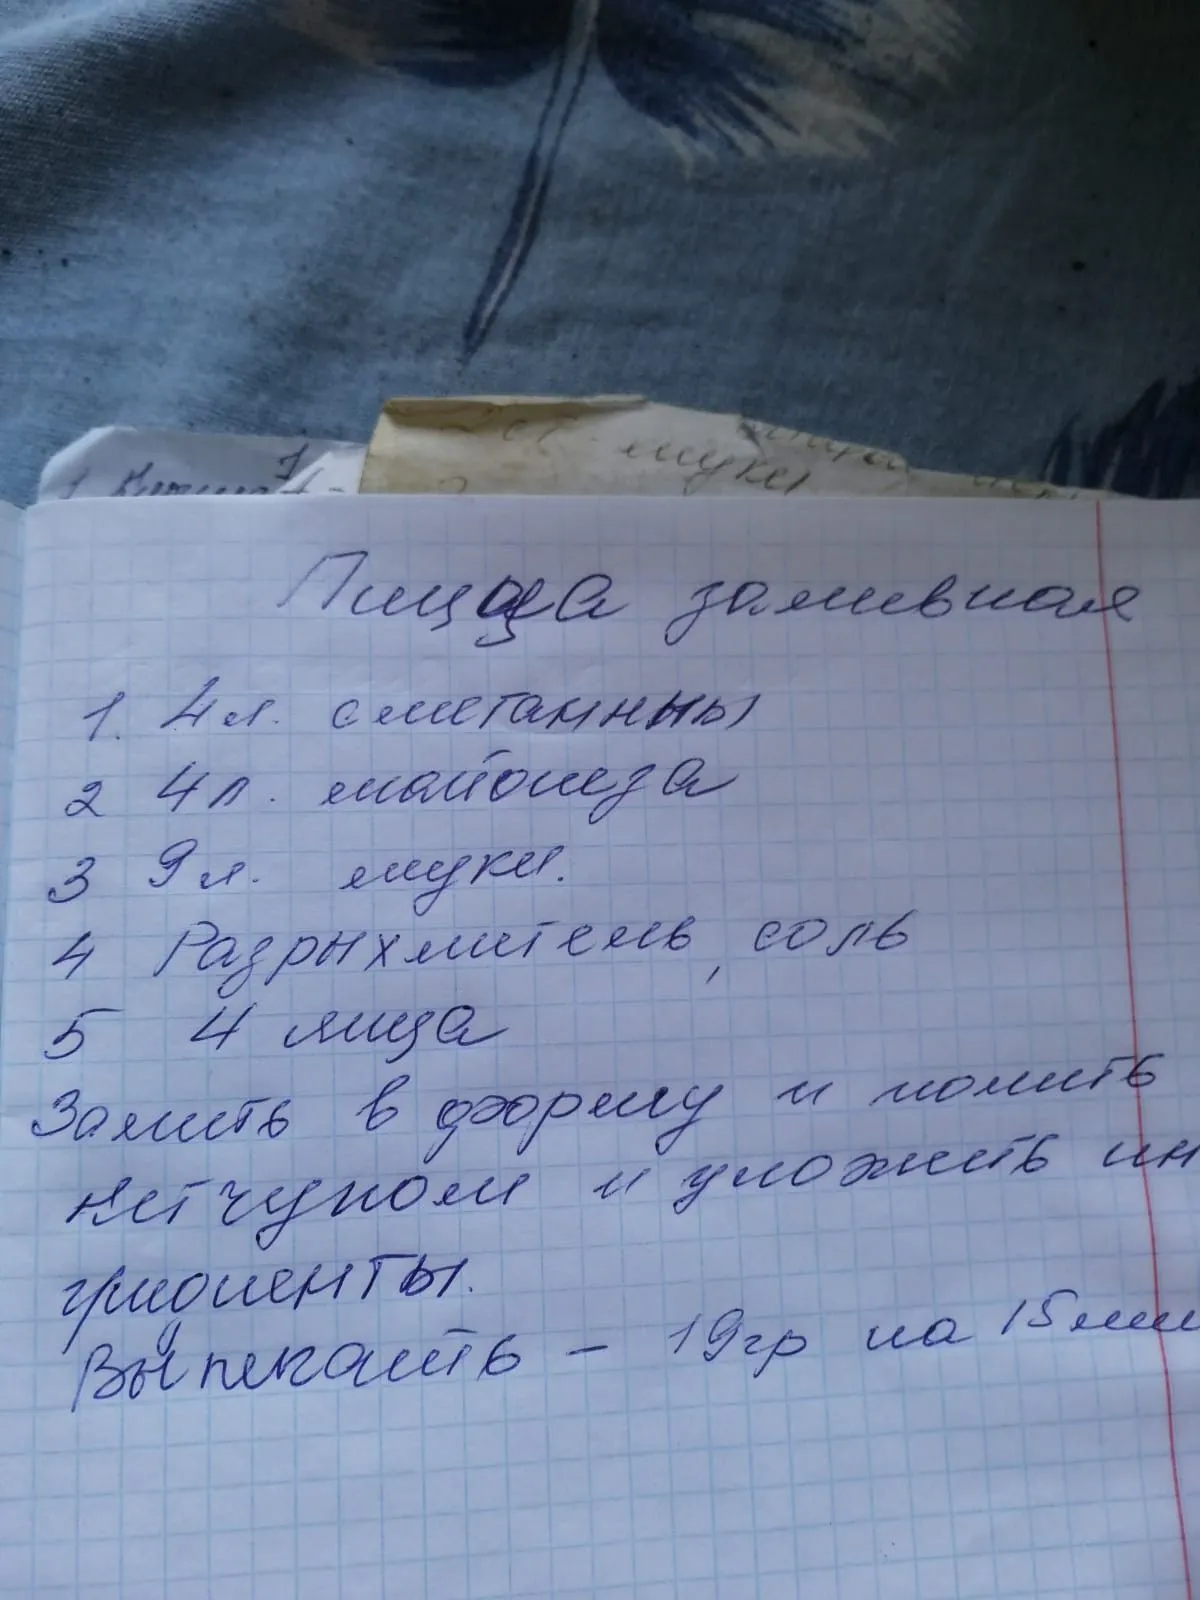 муки
Пицца заливная
1. 4л. сметанны
2 4л. майонеза
3 9л. муки.
4 Разрыхлитель, соль
5 4 яица
Залить в форму и полить
кетчупом и уложить ин
гридиенты.
Выпекать - 19гр на 15мин